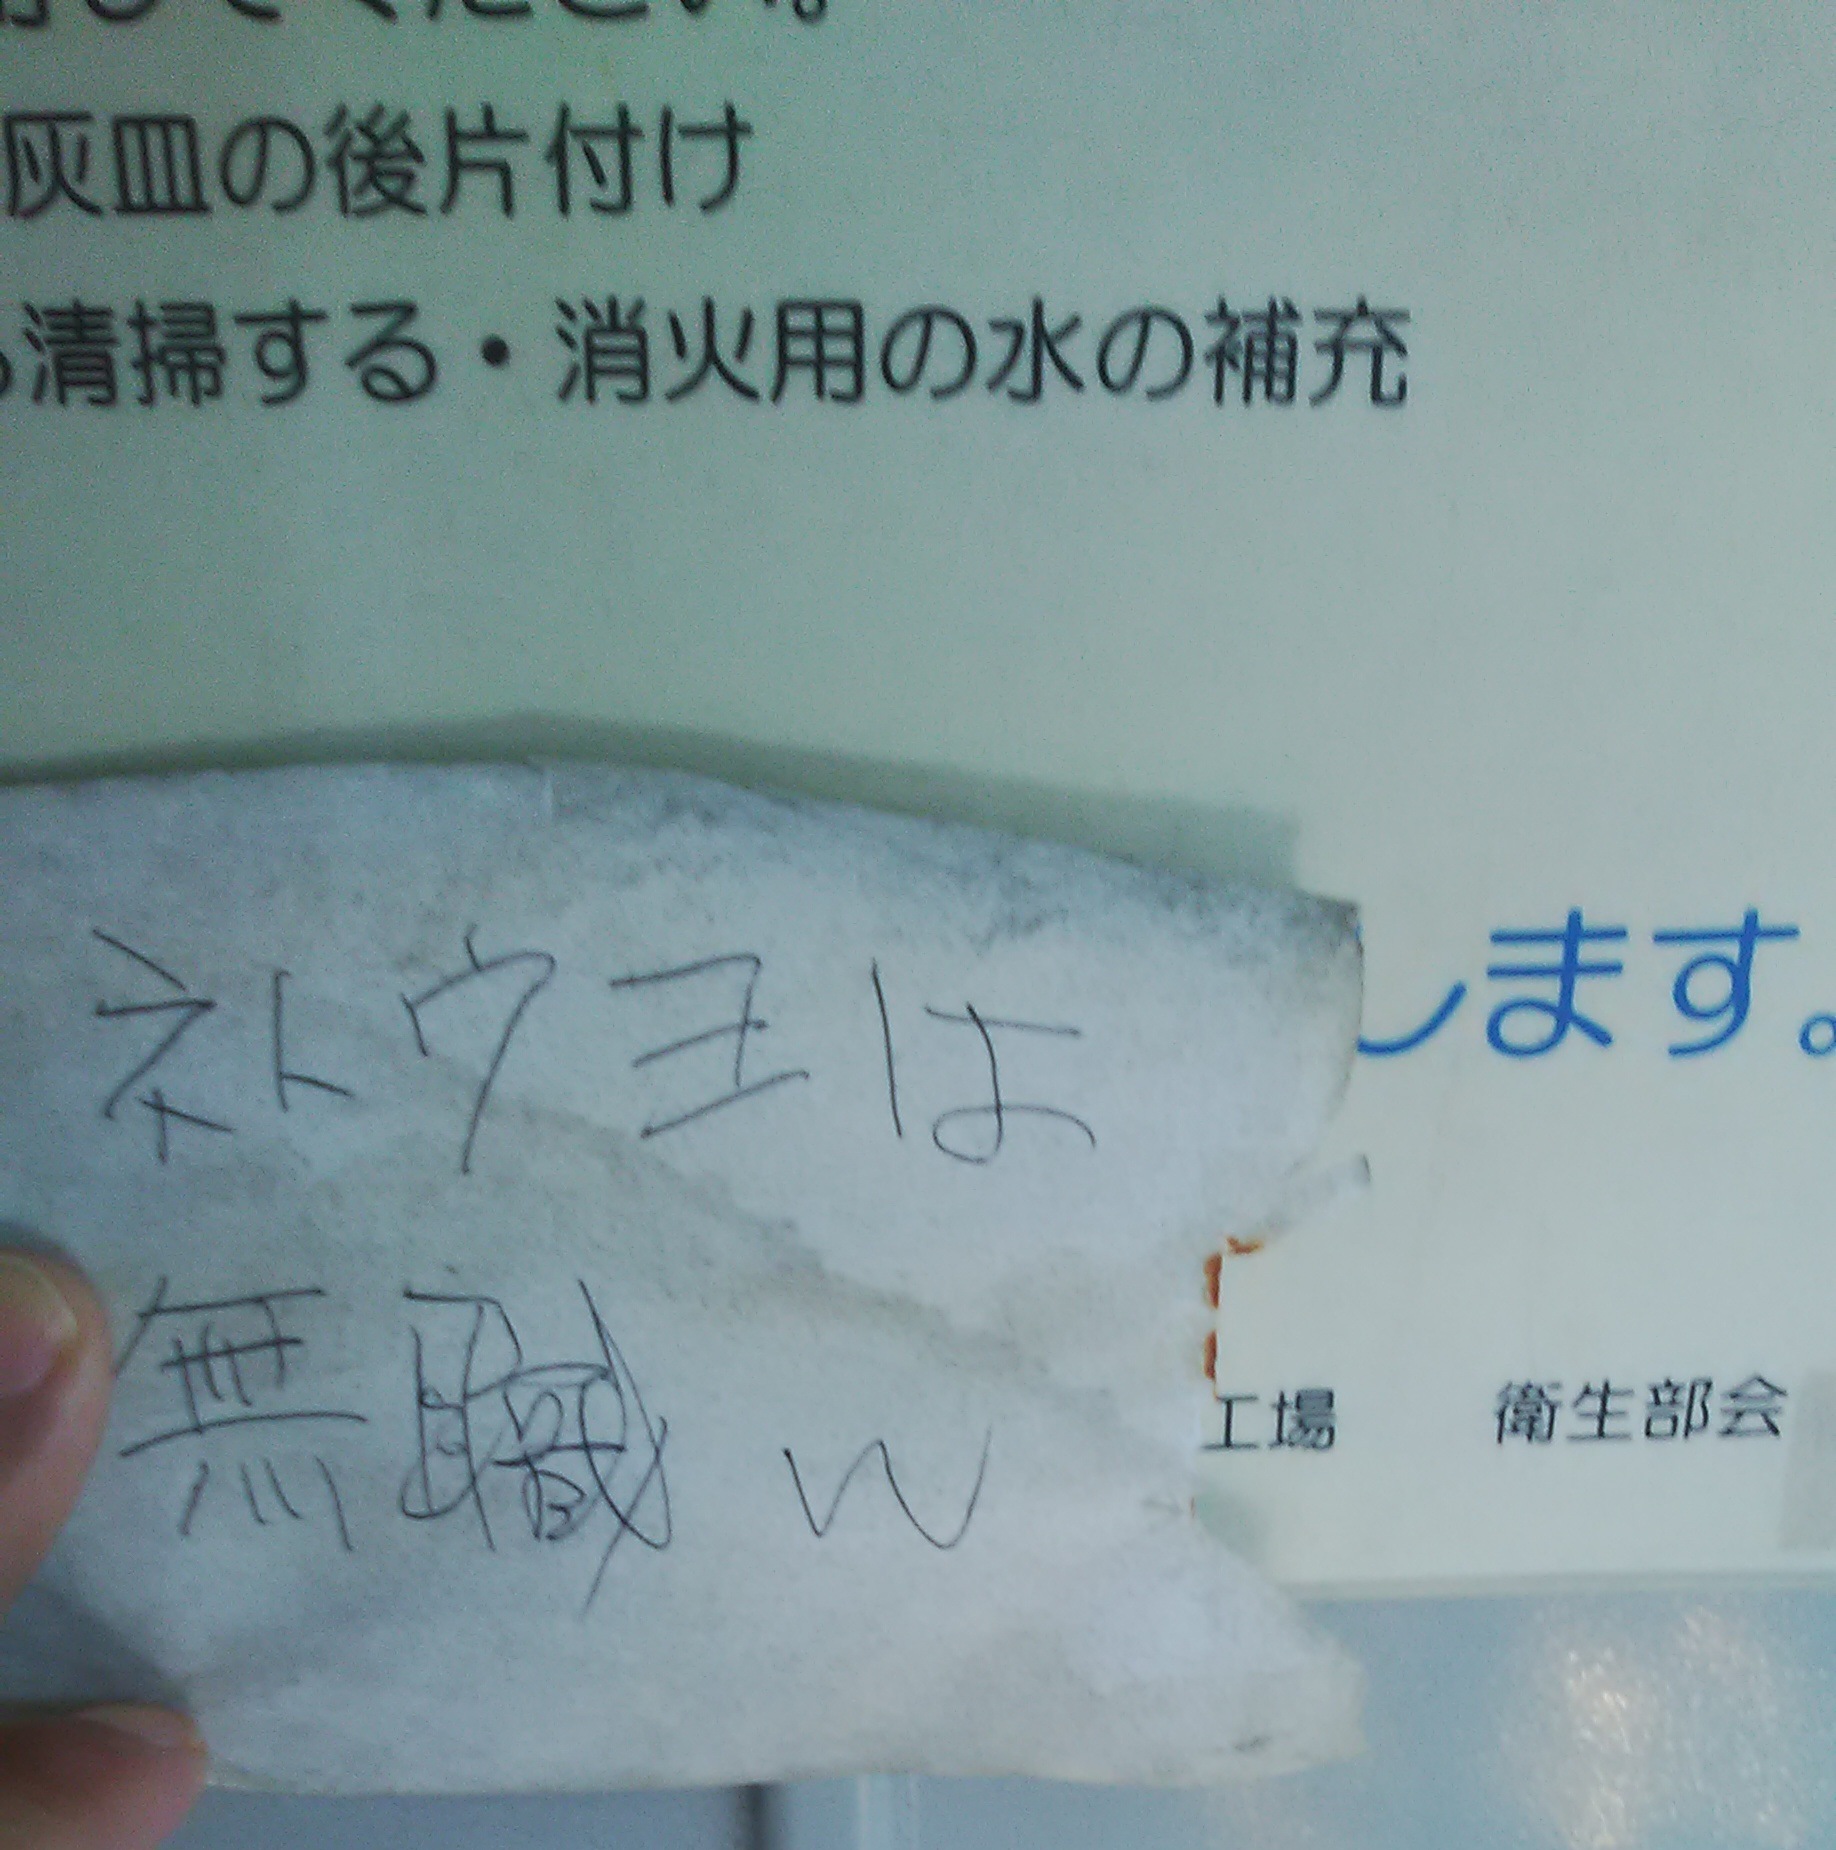 してください。
灰皿の後片付け
清掃する・消火用の水の補充
します。
ネトウヨは
無職w
工場 衛生部会